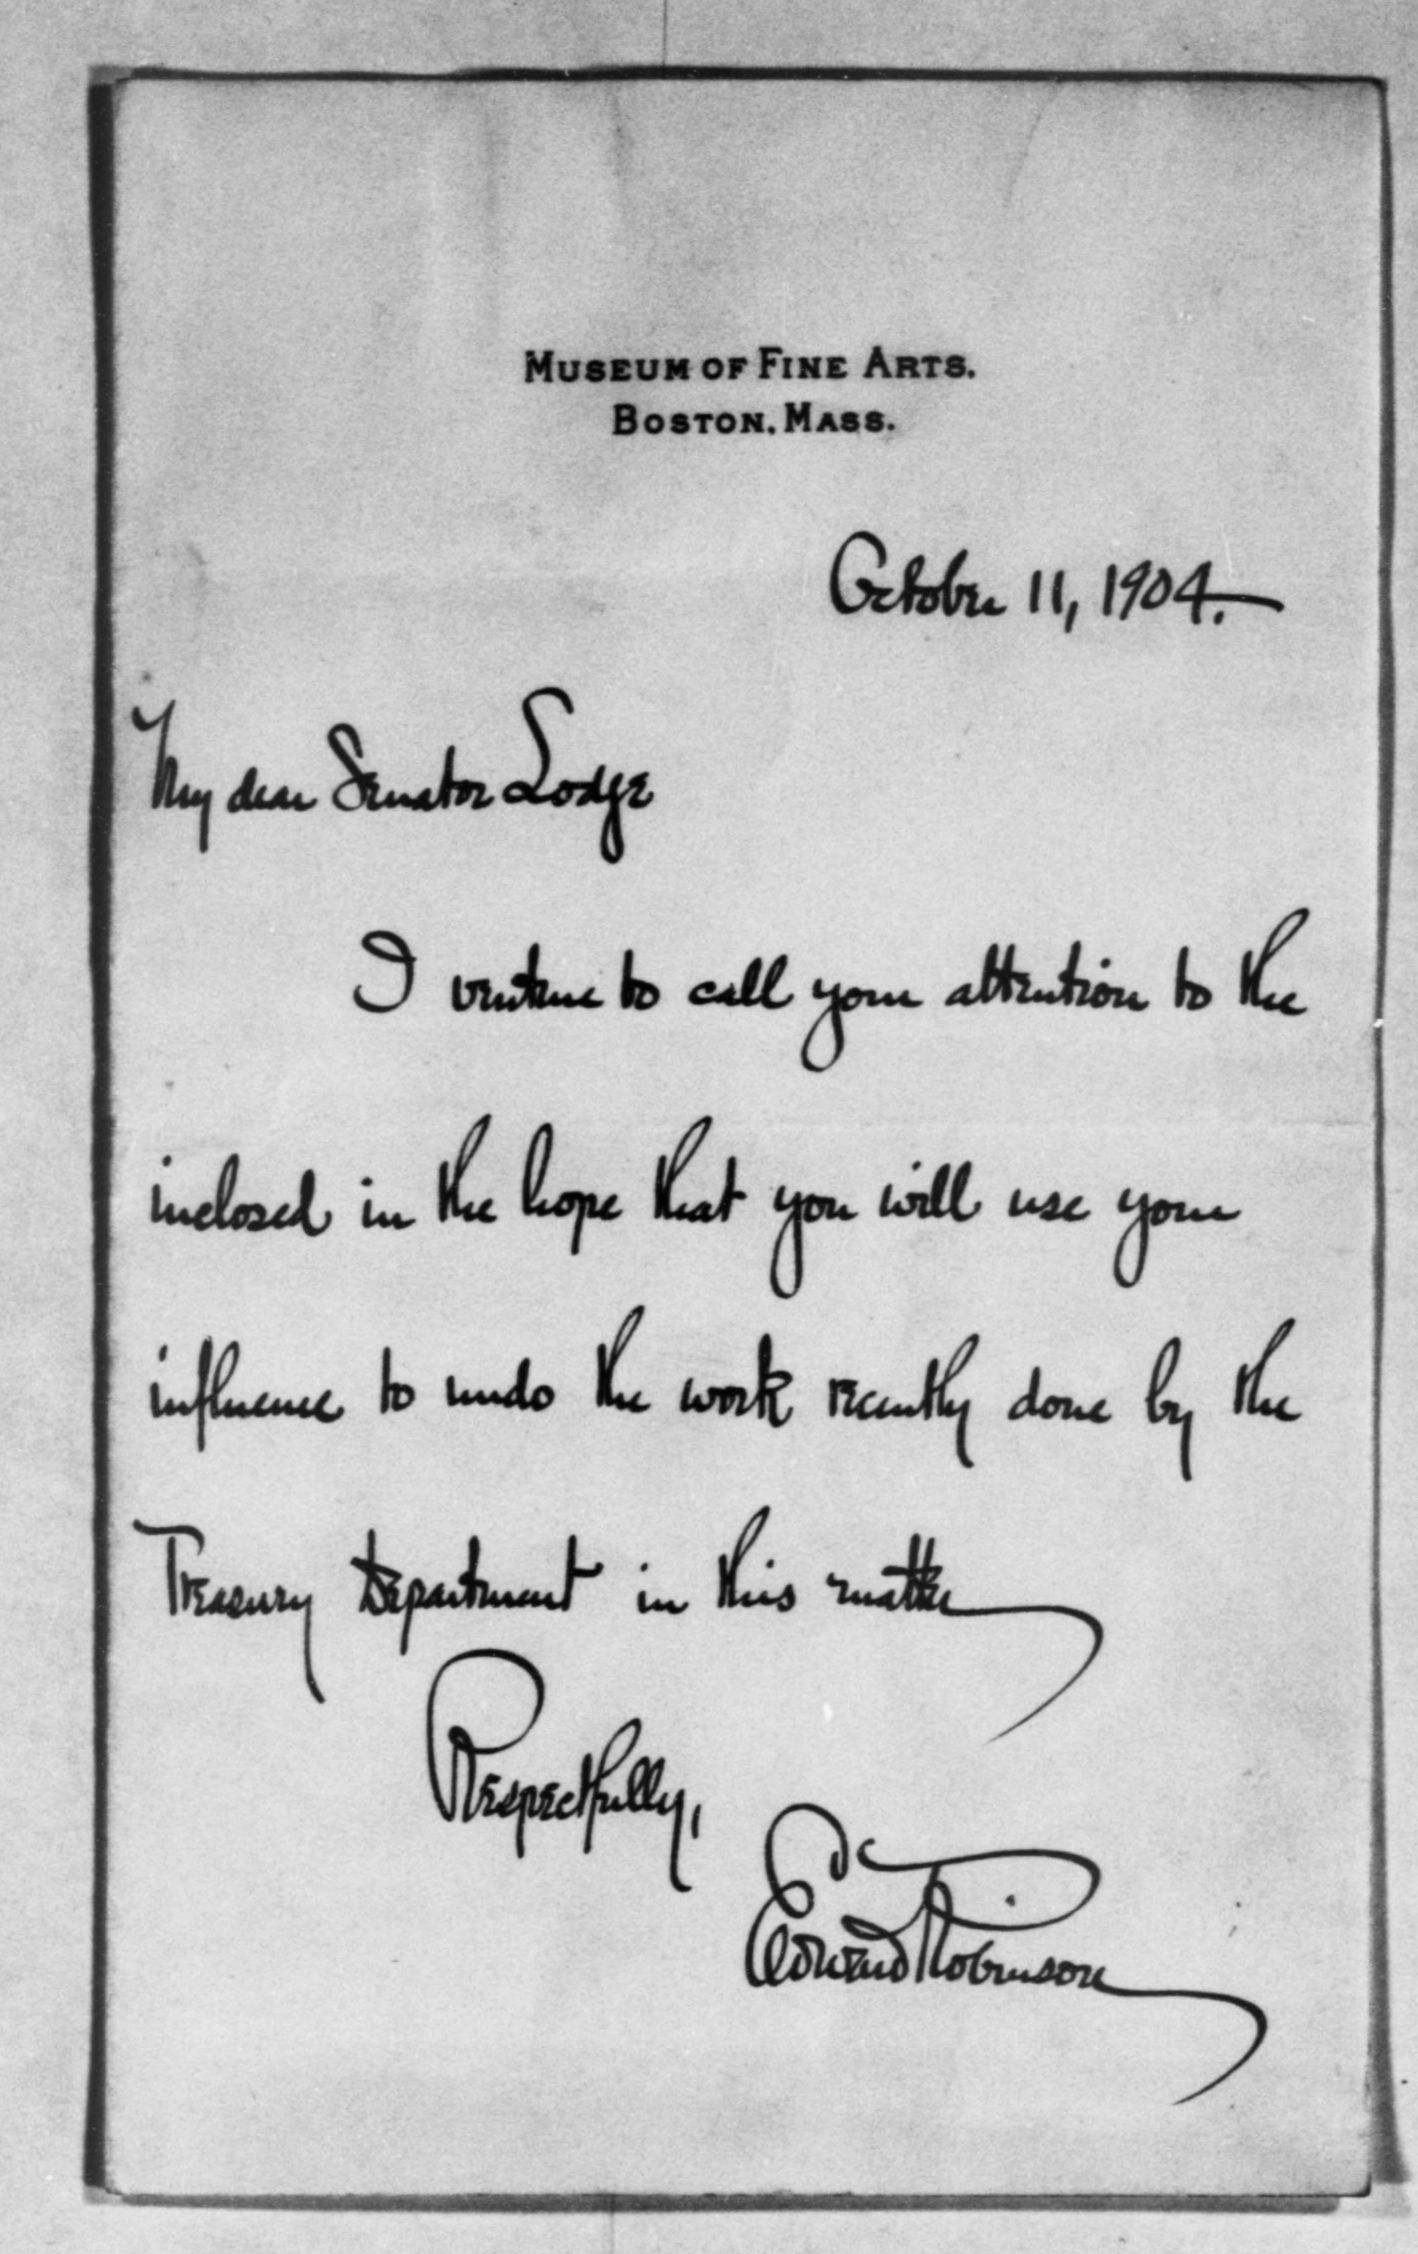 MUSEUM OF FINE ARTS.
BOSTON, MASS.
October 11, 1904.
My dear Senator Lodge
I venture to call your attention to the
inclosed in the hope that you will use your
influence to undo the work recently done by the
Treasury Department in this matter
Respectfully,
Edward Robinson